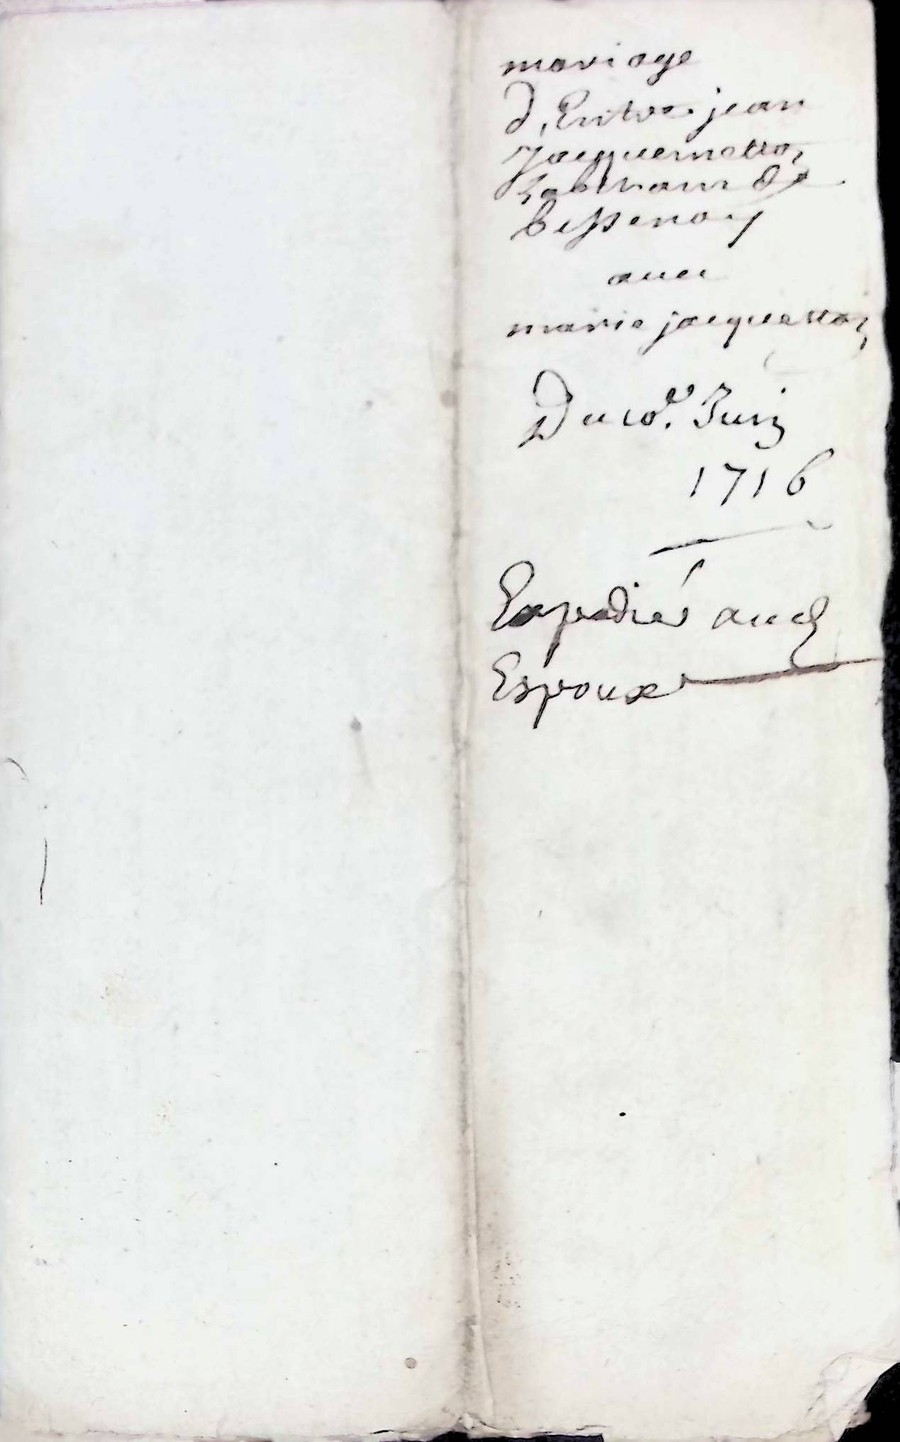 mariage
d'Entre jean
Jacquemettoz
habitant de
bessenay
avec
marie jacquettoz
Du 10.e Juin
1716
Expedié aud
Espoux